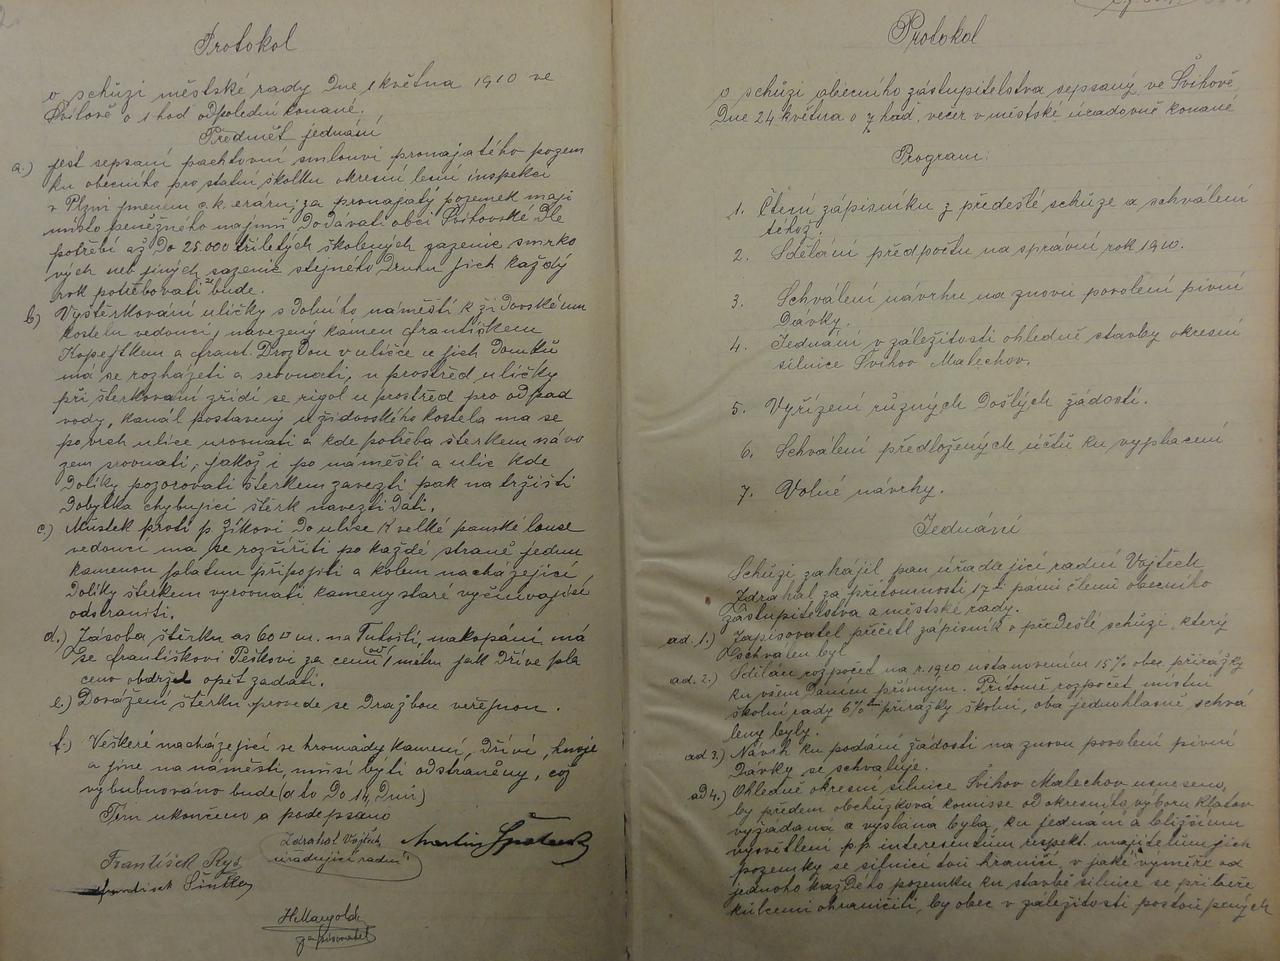 Protokol
o schůzi městské rady Dne 1 května 1910 ve
Švihově o 1 hod odpolední konané.
Předmět jednání
a.) jest sepsaní pachtovní smlouvi pronajatého pozem
ku obecního pro statní školku okresní lesní inspekci
v Plzni jmenem c. k. eráru, za pronajatý pozemek mají
místo peněžného najmu Dodávati obci Švihovské Dle
potřebí až Do 25.000 tříletých školených sazenic smrko
vých neb jiných sazenic stejného Druhu jich každý
rok potřebovati bude.
b) Vyštěrkování uličky s Dolního náměstí k židovskému
kostelu vedoucí, navezený kámen Františkem
Kopejtkem a frant. Drozdou v uličce u jich Domků
má se rozházeti a srovnati, u prostřed uličky
při štěrkování zřídí se rigol u prostřed pro odpad
vody, kanál postavený u židovského kostela ma se
po vrch ulice urovnati a kde potřeba štěrkem návo
zem srovnati, jakož i po náměstí a ulic kde
Dolíky pozorovati štěrkem zavezti pak na tržišti
Dobytka chybující štěrk navezti Dáti.
c.) Mustek proti p Zíkovi Do ulice k velké panské louce
vedoucí má se rozšířiti po každé straně jednu
kamenou platnu připojiti a kolem nacházející
Dolíky štěrkem vyrovnati kameny staré vyčnívající
odstraniti.
d.) Zásoba štěrku as 60 □ m. na Tuhošti, nakopání má
se františkovi Peškovi za cenu od 1 métru jak Dříve pla
ceno obdržel opět zadati.
e.) Dovážení štěrku provede se Dražbou veřejnou.
f.) Veškeré nacházející se hromady kamení, Dříví, hnoje
a jine na náměstí, musí býti odstraněny, což
vybubnováno bude (a to Do 14 Dnů)
Tím ukončeno a podepsano
Zdrahal Vojtěch
úřadující radní
František Ryš
H. Mangold
zapisovatel
Protokol
o schůzi obecního zástupitelstva sepsaný ve Švihově
Dne 24 května o 7 hod. večer v městské úřadovně konané
Program:
1. Čtení zápisníku z předešlé schůze a schválení
téhož.
2. Sdělání předpočtu na správní rok 1910.
3. Schválení návrhu na znovu povolení pivní
Dávky.
4. Jednání v záležitosti ohledně stavby okresní
silnice Švihov Malechov.
5. Vyřízení různých Došlých žádostí.
6. Schválení předložených účtů ku vyplacení
7. Volné návrhy.
Jednání
Schůzi zahájil pan úřadující radní Vojtěch
Zdrahal za přítomnosti 17ti pánů členů obecního
zástupitelstva a městské rady.
ad. 1.) Zapisovatel přečetl zápisník o předešlé schůzi, který
schválen byl
ad. 2.) Sdělán rozpočet na r. 1910 ustanovením 15% obec. přirážky
ku všem Daním přímým. Přítomě rozpočet místní
školní rady 6% přirážky školní, oba jednohlasně schvá
leny byly.
ad 3.) Návrh ku podání žádosti na znovu povolení pivní
Dávky se schvaluje.
ad 4.) Ohledně okresní silnice Švihov Malechov usneseno,
by předem obchůzková komisse od okresního výboru Klatov
vyžádaná a vyslána byla, ku jednání a bližšímu
vysvětlení p. p. interesentům respekt. majitelům jich
pozemky se silnicí tou hraničí, v jaké výměře od
jednoho každého pozemku ku stavbě silnice se přibeře
kůlcemi ohraničiti, by obec v záležitosti postoupených